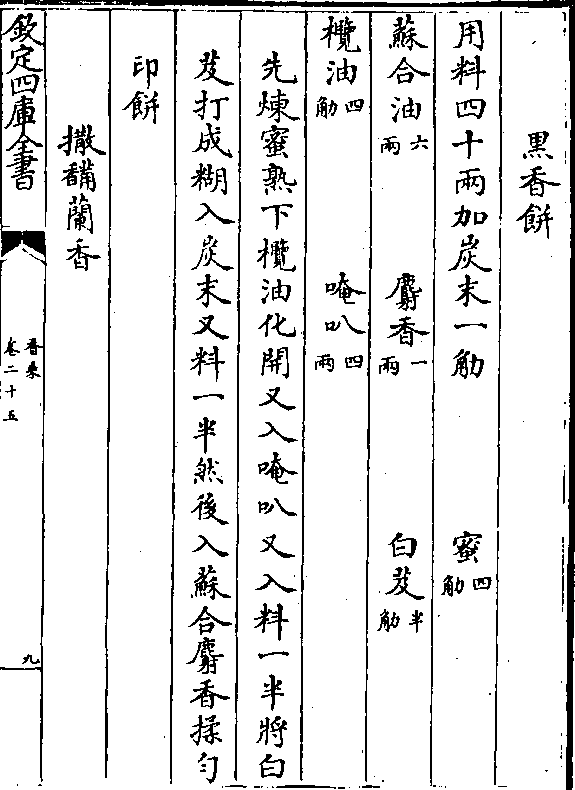 黒香餅
用料四十兩加炭末一觔　蜜四觔
蘇合油六兩　麝香一兩　白芨半觔
欖油四觔　唵叭四兩
先煉蜜熟下欖油化開又入唵叭又入料一半將白
芨打成糊入炭末又料一半然後入蘇合麝香揉匀
印餅
撒馣蘭香
欽定四庫全書
香乘
卷二十五
九